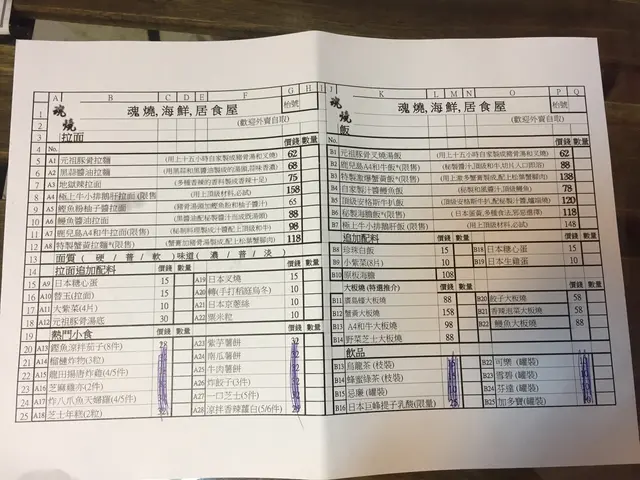 魂燒,海鮮,居食屋
枱號
(歡迎外賣自取)
魂燒
拉面
No. 價錢 數量
A1 元祖豚骨拉麵 (用上十五小時自家製成豬骨湯和叉燒) 62
A2 黑蒜醬油拉麵 68
A3 地獄辣拉面 (多種香辣的香料製成香辣十足) 75
A4 極上牛小排鵝肝拉面(限售 (用上頂級材料,必試) 158
A5 鰹魚粉柚子醬拉面 65
A6 鰻魚醬油拉麵 88
A7 鹿兒島A4和牛拉面(限售 98
A8 特製蟹黃拉麵*(限售 118
面質(硬/普/軟)味道(濃/普/淡)
拉面追加配料 價錢 數量 價錢 數量
A9 日本糖心蛋 15 A19 日本叉燒 15
A10 替玉(拉面) 15 A20 轉(手打稻庭烏冬) 10
A11 大紫菜(4片) 10 A21 日本京蔥絲 10
A12 元祖豚骨湯底 30 A22 粟米粒 10
熱門小食 價錢 數量 價錢 數量
A13 鰹魚涼拌茄子(8件) 28 A23 紫芋薯餅
A14 榴槤炸物(3粒) A24 南瓜薯餅
A15 龍田揚唐炸雞(4/5件) A25 牛肉薯餅
A16 芝麻雞亦(2件) A26 炸餃子(3件)
A17 炸八爪魚天婦羅(4/5件) A27 一口芝士(5件)
A18 芝士年糕(2粒) A28 涼拌香辣蘿白(5/6件)
魂燒,海鮮,居食屋
枱號
(歡迎外賣自取)
魂燒
飯
No. 價錢 數量
B1 元祖豚骨叉燒湯飯 (用上十五小時自家製成豬骨湯和叉燒) 62
B2 鹿兒島A4和牛飯*(限售) 88
B3 特製激爆蟹黃飯*(限售) 138
B4 自家製汁醬鰻魚飯 (秘製和風醬汁,頂級鰻魚) 78
B5 頂級安格斯牛扒飯 120
B6 秘製海膽飯*(限售) 118
B7 極上牛小排鵝肝飯(限售) (用上頂級材料,必試) 148
追加配料 價錢 數量 價錢 數量
B8 珍珠白飯 15 B18 日本糖心蛋 15
B9 小紫菜(8片) 10 B19 日本生雞蛋 10
B10 原板海膽 108
大板燒(特選推介) 價錢 數量 價錢 數量
B11 廣島樣大板燒 88 B20 餃子大板燒 58
B12 蟹黃大板燒 158 B21 香辣泡菜大板燒 58
B13 A4和牛大板燒 98 B22 鰻魚大板燒 88
B14 野菜芝士大板燒 88
飲品 價錢 數量 價錢 數量
B13 烏龍茶(枝裝) B22 可樂(罐裝)
B14 蜂蜜綠茶(枝裝) B23 雪碧(罐裝)
B15 忌廉(罐裝) B24 芬達(罐裝)
B16 日本巨峰提子乳酸(限量) B25 加多寶(罐裝)